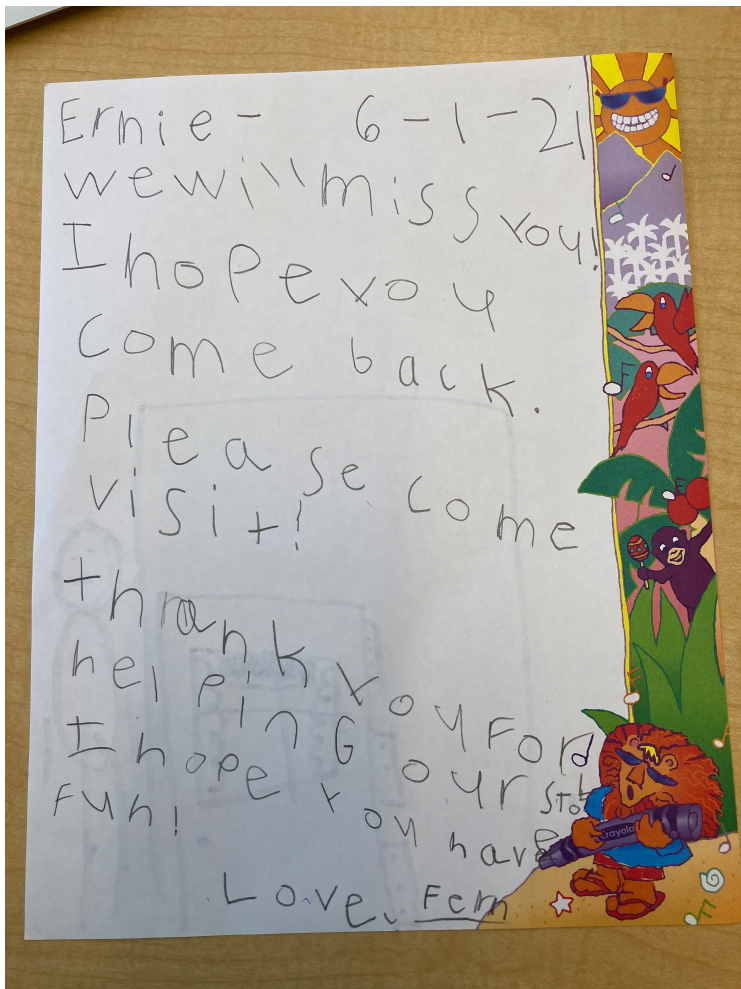 Ernie- 6-1-21
we will miss you!
I hope you
come back.
Please come
visit!
thank you for
helpinG our
I hope you have
Fun!
Love, Fern
Crayola